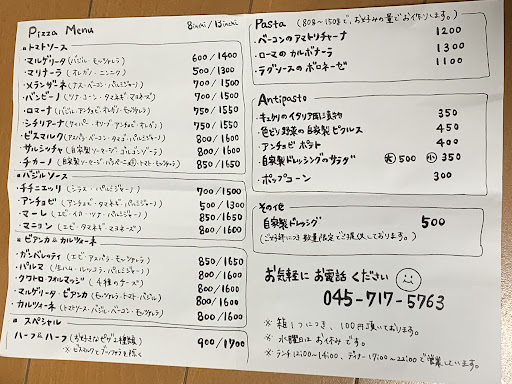 Pizza Menu 8inchi / 12inchi
トマトソース
・マルゲリータ (バジル・モッツァレラ) 600/1400
・マリナーラ (オレガノ・ニンニク) 500/1300
・メランザーネ (ナス・ベーコン・パルミジャーノ) 700/1500
・バンビーノ (ツナ・コーン・タマネギ・マヨネーズ) 700/1500
・ロマーナ (バジル・アンチョビ・オレガノ・モッツァレラ) 750/1550
・シチリアーナ (ケイパー・オリーブ・アンチョビ・オレガノ) 750/1550
・ビスマルク (アスパラ・ベーコン・タマゴ・パルミジャーノ) 800/1600
・サルシッチャ (自家製ソーセージ・ゴルゴンゾーラ) 800/1600
・チカーノ (自家製ソーセージ・トマト・モッツァレラ) 850/1650
バジルソース
・チチニエッリ (シラス・パルミジャーノ) 700/1500
・アンチョビ (アンチョビ・タマネギ・マヨネーズ) 500/1300
・マーレ (エビ・イカ・ツナ・パルミジャーノ) 850/1650
・マニコン (エビ・タマネギ・マヨネーズ) 800/1600
ビアンカ & カルツォーネ
・ガンベレッティ (エビ・アスパラ・モッツァレラ) 850/1650
・パルマ (生ハム・ルッコラ・パルミジャーノ) 800/1600
・クワトロフォルマッジ (4種のチーズ) 800/1600
・マルゲリータ・ビアンカ (モッツァレラ・トマト・バジル) 800/1600
・カルツォーネ (トマトソース・バジル・ベーコン・モッツァレラ) 800/1600
スペシャル
ハーフ&ハーフ (お好きなピザ2種類) 900/1700
※ビスマルクとを除く
Pasta (80g〜150gまで、お好みの量でお作りします。)
・ベーコンのアマトリチャーナ 1200
・ローマのカルボナーラ 1300
・ラグソースのボロネーゼ 1100
Antipasto
・キュウリのイタリア風浅漬物 350
・色どり野菜の自家製ピクルス 450
・アンチョビポテト 400
・自家製ドレッシングのサラダ 大 500 小 350
・ポップコーン 300
その他
自家製ドレッシング 500
(ご好評につき数量限定でご提供しております。)
お気軽にお電話ください
045-717-5763
※ 箱1つにつき、100円頂いております。
※ 水曜日はお休みです。
※ ランチ 12:00〜14:00、ディナー 17:00〜22:00で営業しています。